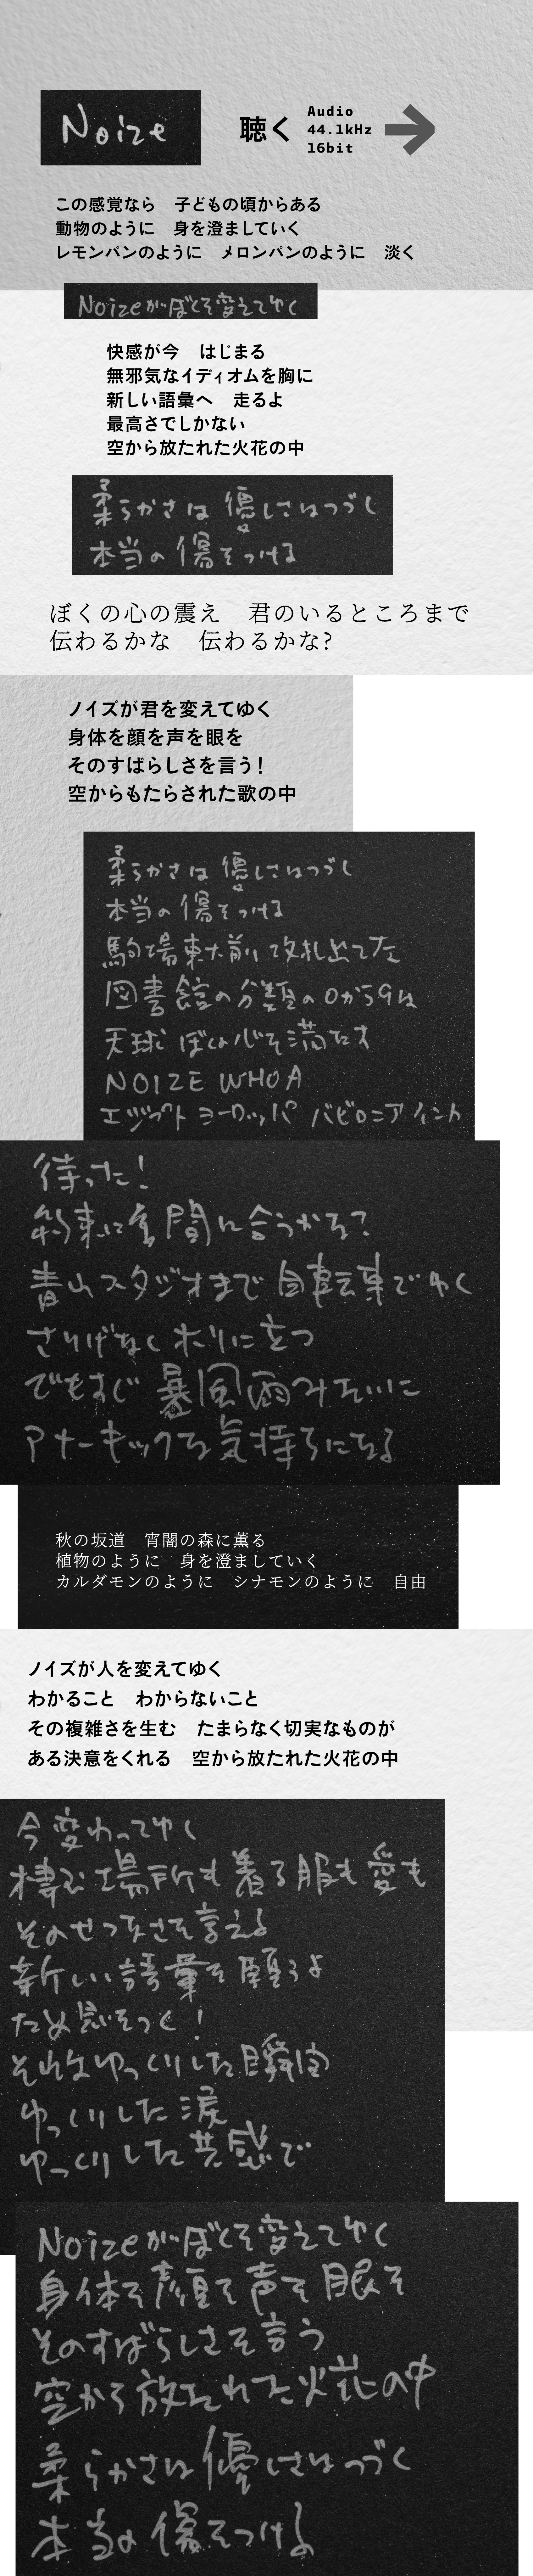 Noize
聴く
Audio
44.1kHz
16bit
この感覚なら　子どもの頃からある
動物のように　身を澄ましていく
レモンパンのように　メロンパンのように　淡く
Noizeがぼくを変えてゆく
快感が今　はじまる
無邪気なイディオムを胸に
新しい語彙へ　走るよ
最高さでしかない
空から放たれた火花の中
柔らかさは 優しさはつづく
本当の 傷をつける
ぼくの心の震え　君のいるところまで
伝わるかな　伝わるかな?
ノイズが君を変えてゆく
身体を顔を声を眼を
そのすばらしさを言う!
空からもたらされた歌の中
柔らかさは 優しさはつづく
本当の 傷をつける
駒場東大前 改札出てった
図書館の分類の0から9は
天球 ぼくの心を満たす
NOIZE WHOA
エジプト ヨーロッパ バビロニア インド
待った!
約束に 間に合うかな?
青山スタジオまで 自転車でゆく
さりげなく ホリに立つ
でもすぐ 暴風雨みたいに
アナーキックな気持ちになる
秋の坂道　宵闇の森に薫る
植物のように　身を澄ましていく
カルダモンのように　シナモンのように　自由
ノイズが人を変えてゆく
わかること　わからないこと
その複雑さを生む　たまらなく切実なものが
ある決意をくれる　空から放たれた火花の中
今変わってゆく
棲む場所も着る服も愛も
そのせつなさを言える
新しい語彙を願うよ
ため息をつく!
それはゆっくりした瞬間
ゆっくりした涙
ゆっくりした共感で
Noizeがぼくを変えてゆく
身体を顔を声を眼を
そのすばらしさを言う
空から放たれた火花の中
柔らかさは優しさはつづく
本当の傷をつける